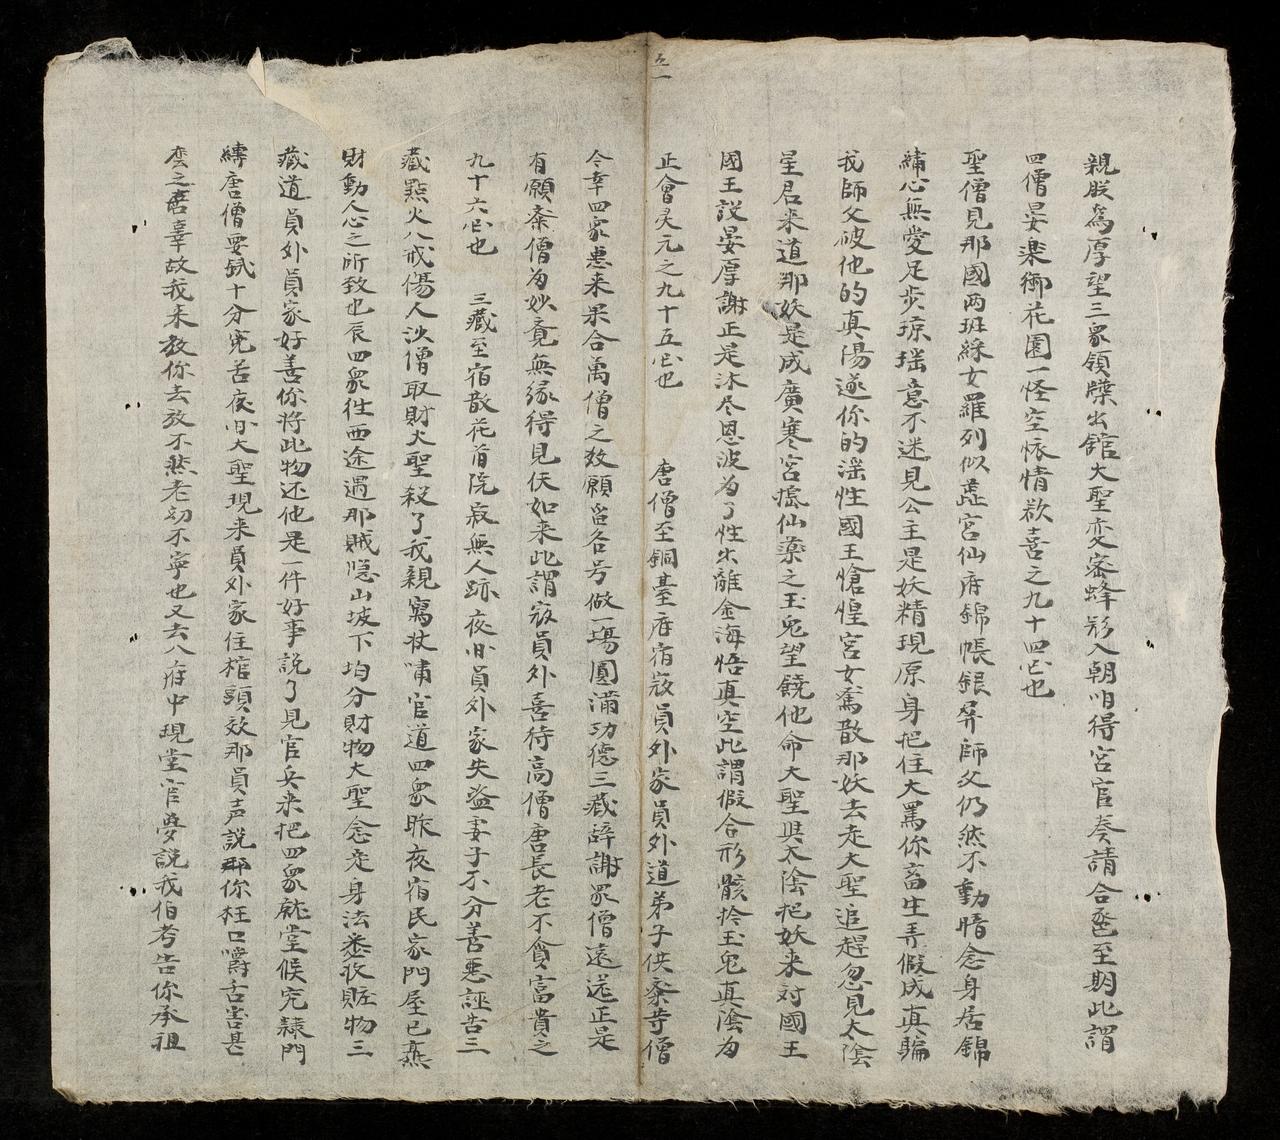 親朕為厚望三衆領牒出館大聖变蜜蜂形入朝咱得宮官奏請合卺至期此謂
四僧晏楽御花園一怪空懐情欲喜之九十四
也
聖僧見那國两班綵女羅列似蕋宮仙府錦帳銀屏師父仍然不動暗念身居錦
繡心無愛足步瓊瑶意不迷見公主是妖精現原身把住大罵你畜生弄假成真騙
我師父破他的真陽遂你的淫性國王愴惶宮女奮散那妖去走大聖追趕忽見太陰
星君来道那妖是成廣寒宮搗仙藥之玉兎望饒他命大聖與太陰把妖来对國王
國王説晏厚謝正是沐尽恩波为了性出離金海悟真空此謂假合形骸拎玉兎真陰为
正會灵元之九十五
也 唐僧至銅臺府宿寇員外家員外道弟子供斋寺僧
今幸四衆惠来果合萬僧之数願留名号做一場圓滿功德三藏辞謝衆僧遠送正是
有願斎僧为妙竟無缘得見伕如来此謂寇員外喜待高僧唐長老不貪富貴之
九十六
也 三藏至宿散花萠院寂無人跡夜
員外家失盗妻子不分善恶誣告三
藏㸃火八戒傷人沙僧取財大聖殺了我親寫状嘯官道四衆昨夜宿民家門屋已燕
財動人心之所致也辰四衆徃西途遇那賊隠山坡下均分財物大聖念定身法悉收賍物三
藏道員外員家好善你將此物还他是一件好事説了見官兵来把四衆就堂候究隷門
縛唐僧要弑十分寃苦夜
大聖現来員外家住棺頭效那員声説
你枉口嚼舌害甚
庅之
辜故我来教你去放不然老幼不寧也又去入府中現堂官夢説我伯考告你承祖